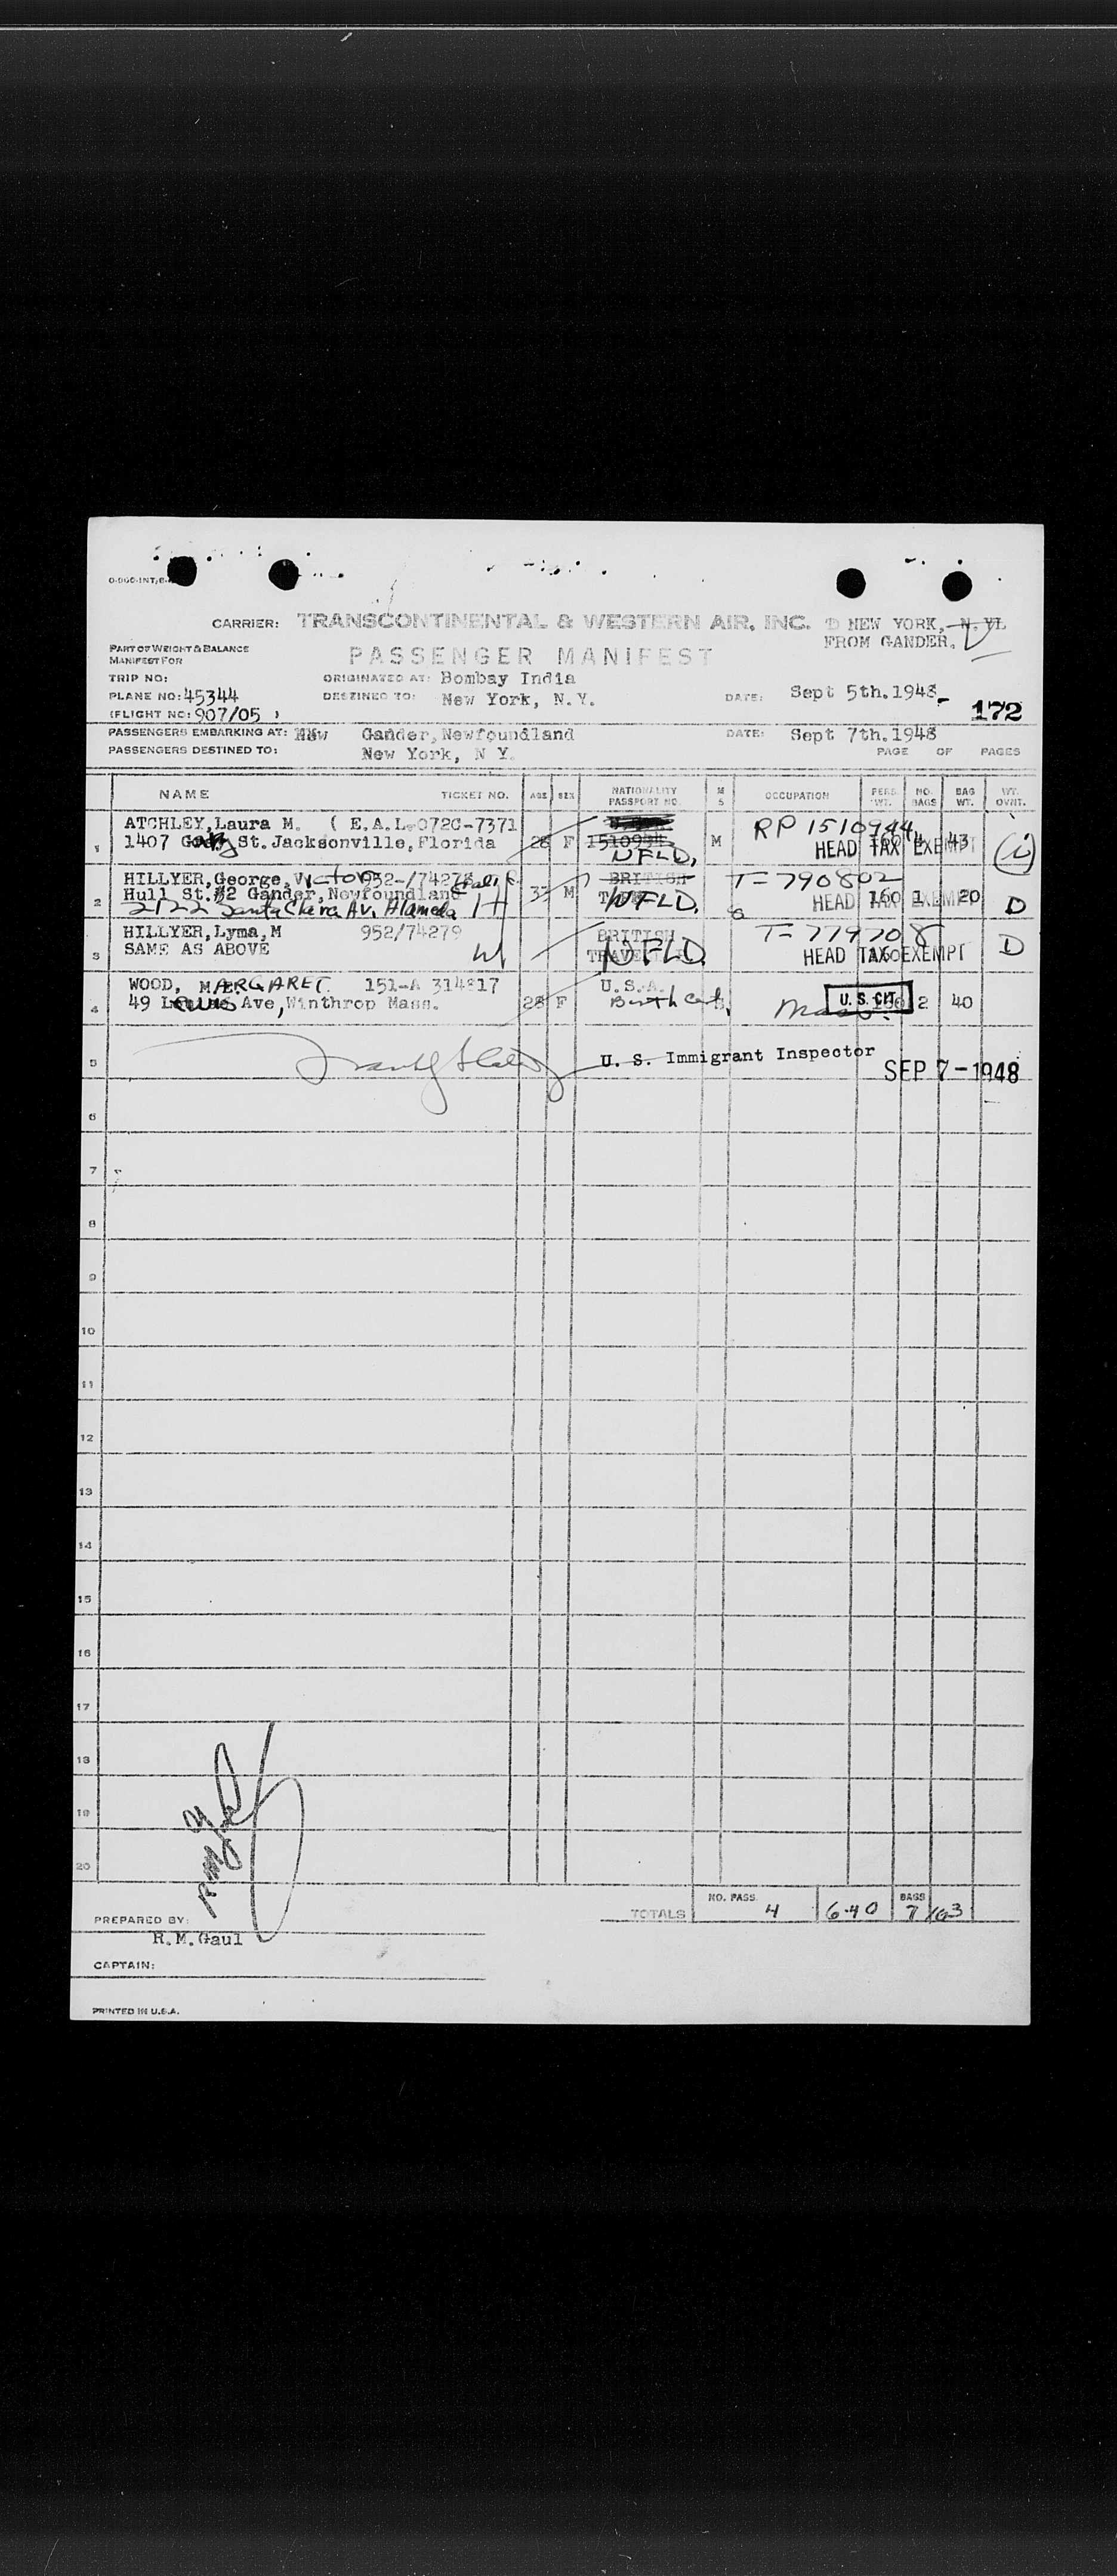 CARRIER: TRANSCONTINENTAL & WESTERN AIR, INC. NEW YORK, N.Y.
FROM GANDER.
PART OF WEIGHT & BALANCE
MANIFEST FOR
PASSENGER MANIFEST
TRIP NO: ORIGINATED AT: Bombay India
PLANE NO: 45344 DESTINED TO: New York, N.Y. DATE: Sept 5th.1948
(FLIGHT NO: 907/05 ) 172
PASSENGERS EMBARKING AT: Gander, Newfoundland DATE: Sept 7th.1948
PASSENGERS DESTINED TO: New York, N Y. PAGE OF PAGES
NAME TICKET NO. AGE SEX NATIONALITY PASSPORT NO. M S OCCUPATION PERS. WT. NO. BAGS BAG WT. WT. OVNT.
1 ATCHLEY, Laura M. ( E.A.L. 072C-7371 28 F M RP 1510944 43
1407 St. Jacksonville, Florida NFLD. HEAD TAX EXEMPT
2 HILLYER, George, Victor 952-/74278 Calif 33 M BRITISH T-790802
Hull St. #2 Gander, Newfoundland NFLD. HEAD EXEMPT 160 1 20 D
2122 Santa Clara Av. Alameda H
3 HILLYER, Lyma, M 952/74279 BRITISH T-779708 D
SAME AS ABOVE W NFLD. HEAD TAX EXEMPT
4 WOOD, MARGARET 151-A 314817 28 F U.S.A. U.S. CIT. 2 40
49 Ave, Winthrop Mass. Birth Cert. S Mass.
5 U. S. Immigrant Inspector
SEP 7-1948
6
7
8
9
10
11
12
13
14
15
16
17
18
19
20
TOTALS NO. PASS. 4 640 BAGS 7/103
PREPARED BY:
R.M.Gaul
CAPTAIN:
PRINTED IN U.S.A.